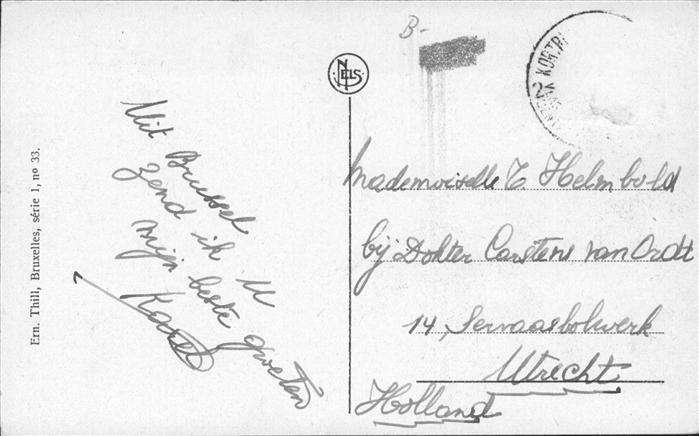 B-
NELS
KORTR
Uit Brussel
zend ik U
mijn beste groeten
Karel
Mademoiselle C. Helmbold
bij Dokter Carstens van Ordt
14, Servaasbolwerk
Utrecht
Holland
Ern. Thill, Bruxelles, série 1, nº 33.